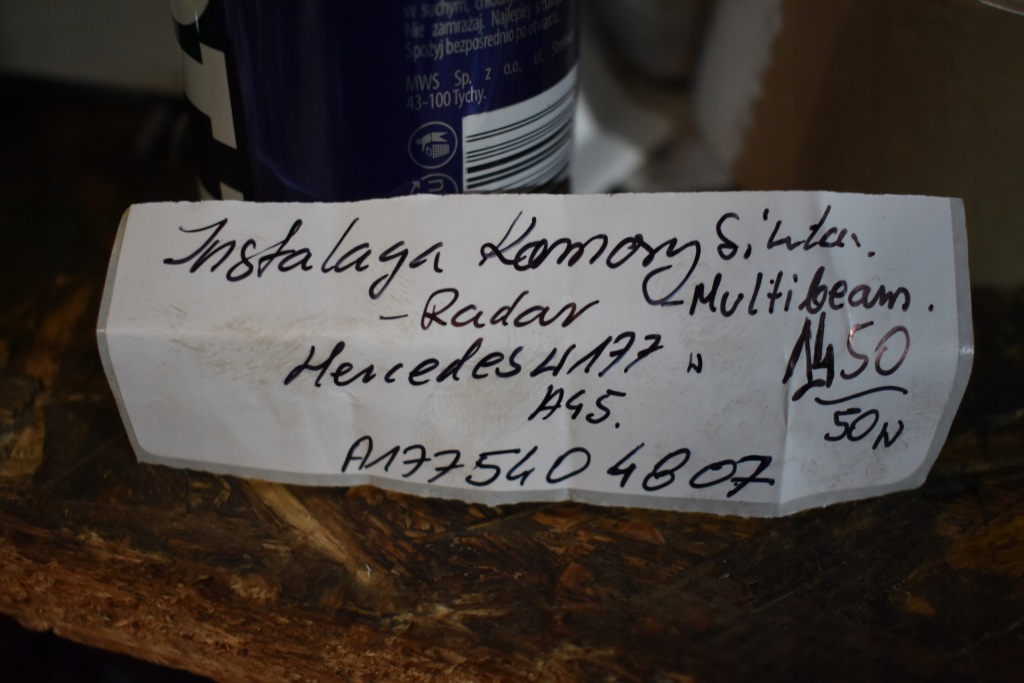 w suchym, chłod
Nie zamrażaj. Najlepiej
Spożyj bezpośrednio po
MWS Sp. z o.o.; ul.
43-100 Tychy.
Instalacja Komory Silnika.
- Radar - Multibeam.
Mercedes W177 N
A45.
1450
50N
A1775404807